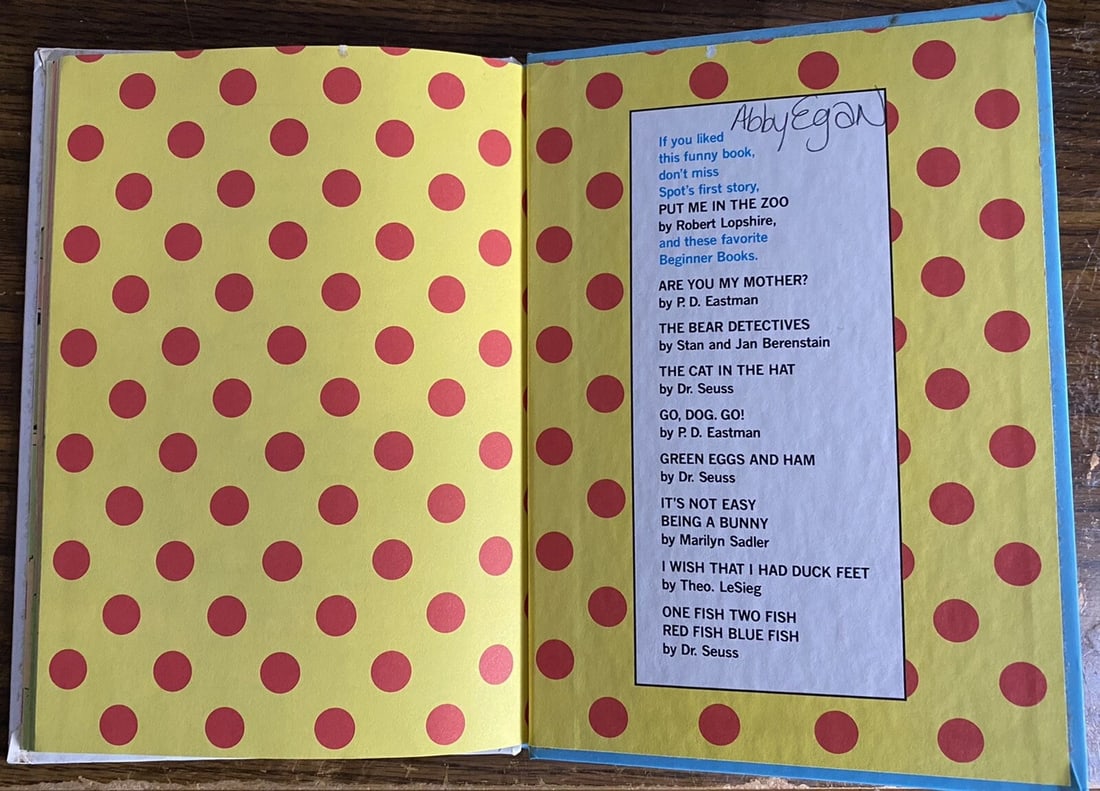 Abby Egan
If you liked
this funny book,
don't miss
Spot's first story,
PUT ME IN THE ZOO
by Robert Lopshire,
and these favorite
Beginner Books.
ARE YOU MY MOTHER?
by P. D. Eastman
THE BEAR DETECTIVES
by Stan and Jan Berenstain
THE CAT IN THE HAT
by Dr. Seuss
GO, DOG. GO!
by P. D. Eastman
GREEN EGGS AND HAM
by Dr. Seuss
IT'S NOT EASY
BEING A BUNNY
by Marilyn Sadler
I WISH THAT I HAD DUCK FEET
by Theo. LeSieg
ONE FISH TWO FISH
RED FISH BLUE FISH
by Dr. Seuss